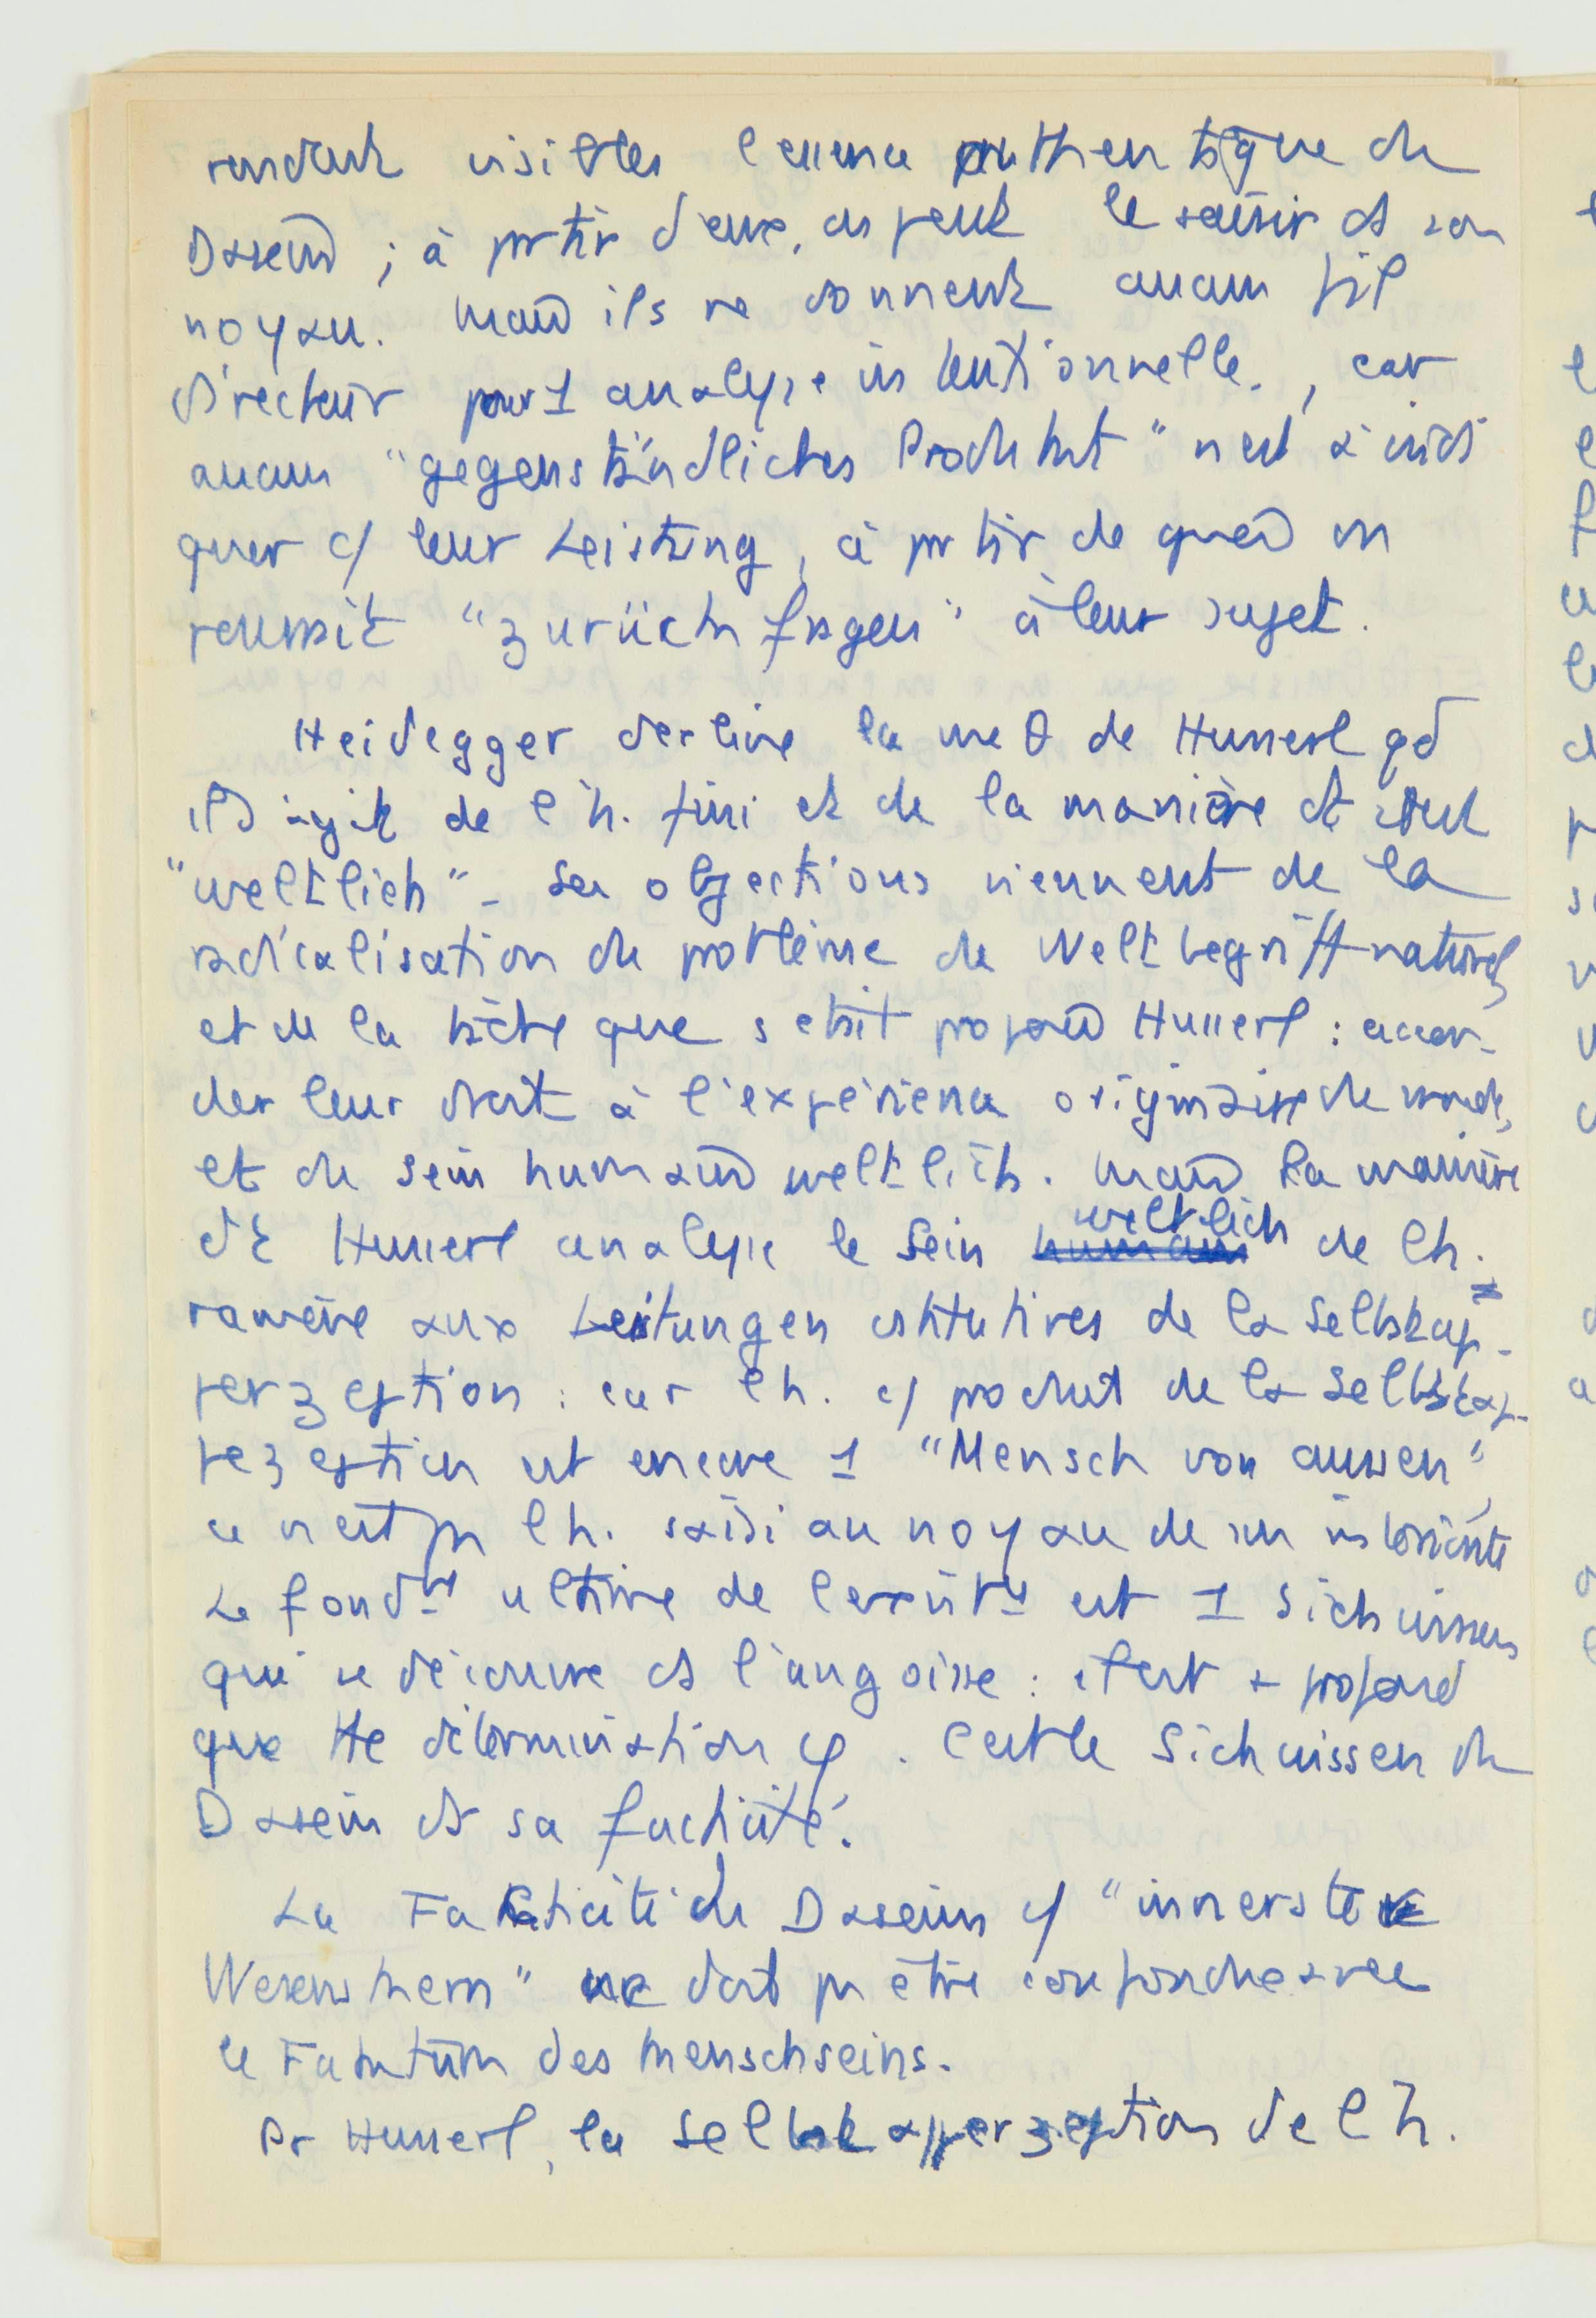 rendent visibles l'essence authentique du
Dasein ; à partir d'eux, on peut le saisir ds son
noyau. Mais ils ne donnent aucun fil
directeur pour 1 analyse intentionnelle, car
aucun "gegenständliches Produkt" n'est à indi
quer c/ leur Leistung, à partir de quoi on
réussit "zurückfragen" à leur sujet.
Heidegger décline la mé θ de Husserl qd
il s'agit de l'h. fini et de la manière dt il est
"weltlich" - Ses objections viennent de la
radicalisation du problème du Weltbegriff naturel,
et de la tâche que s'était proposé Husserl : accor-
der leur droit à l'expérience originaire du monde,
et du sein humain weltlich. Mais la manière
dt Husserl analyse le Sein weltlich de l'h.
ramène aux Leistungen cstitutives de la Selbstap-
perzeption : car l'h. c/ produit de la Selbstap-
perzeption est encore 1 "Mensch von aussen",
ce n'est pas l'h. saisi au noyau de son intériorité
Le fondt ultime de l'existt est 1 Sichwissen
qui se découvre ds l'angoisse : il est + profond
que tte détermination φ. C'est le Sichwissen du
Dasein ds sa facticité.
La Fakticité du Dasein c/ "innerste
Wesenskern" ne doit pas être confondue avec
le Faktum des Menschseins.
Pr Husserl, la Selbstapperzeption de l'h.